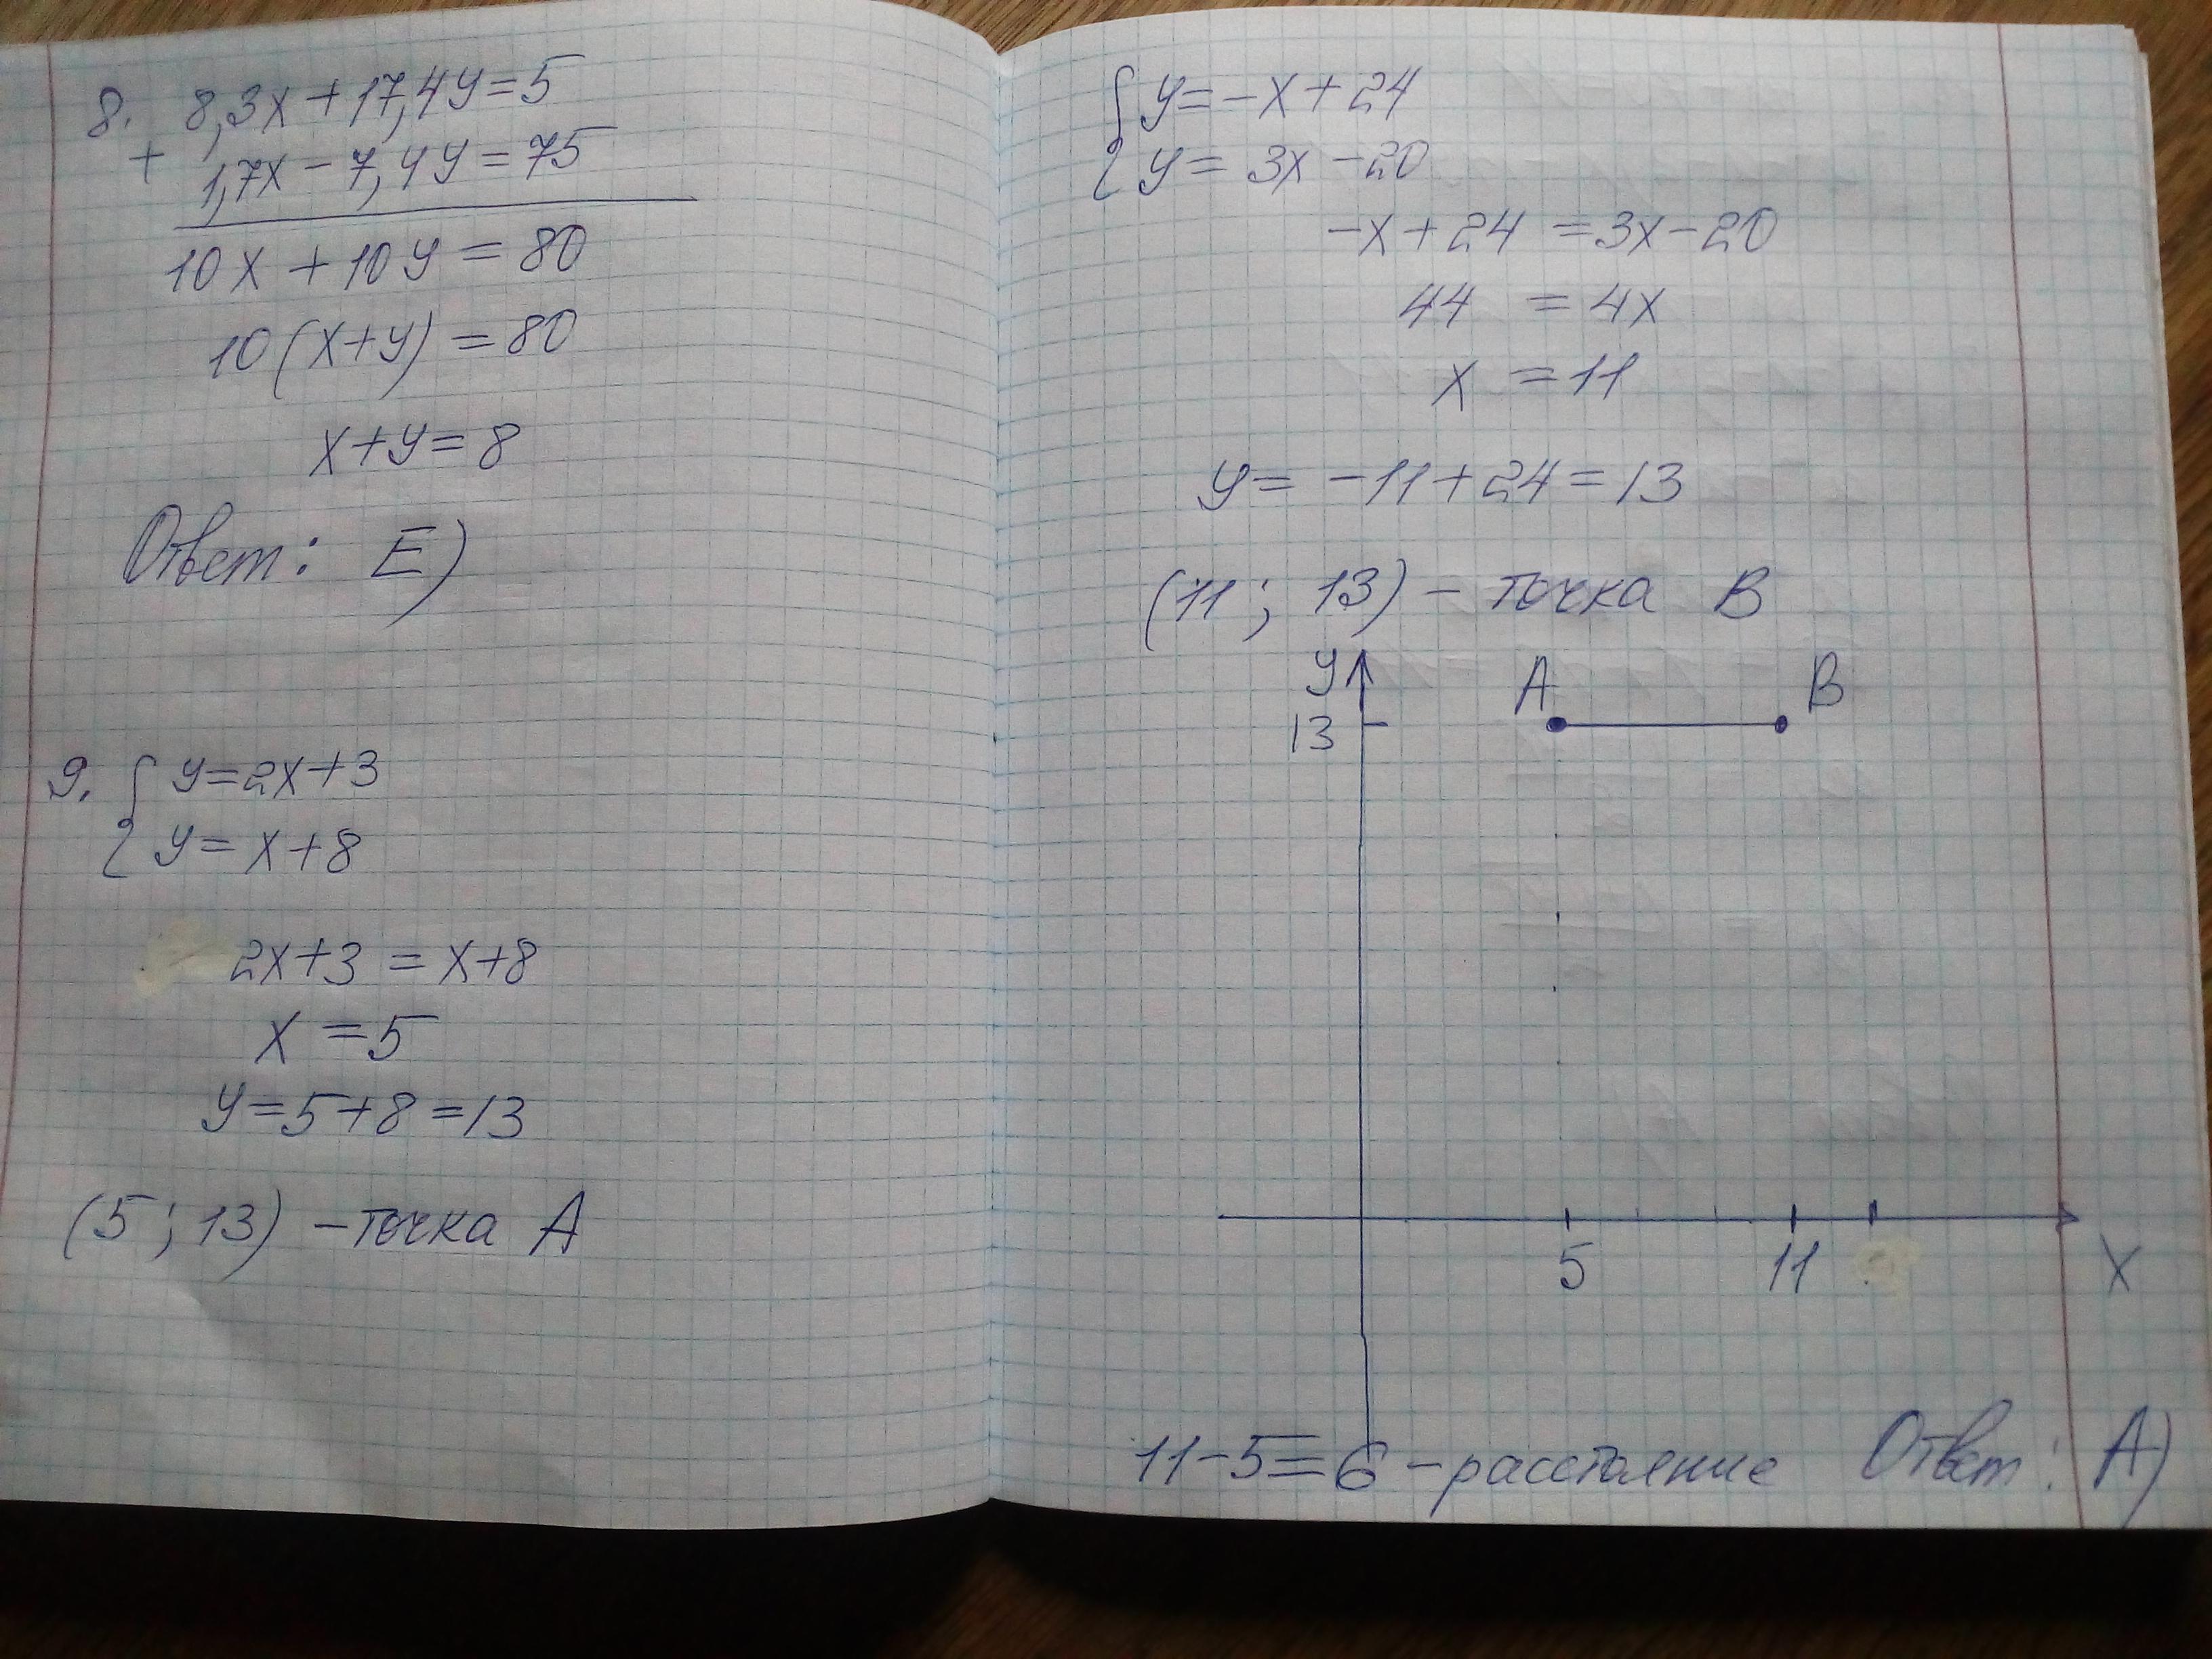 8. 8,3x + 17,4y = 5
+ 1,7x - 7,4y = 75
10x + 10y = 80
10(x+y) = 80
x+y = 8
Ответ: E)
9. { y = 2x+3
y = x+8
2x+3 = x+8
x = 5
y = 5+8 = 13
(5; 13) - точка A
{ y = -x + 24
y = 3x - 20
-x + 24 = 3x - 20
44 = 4x
x = 11
y = -11 + 24 = 13
(11; 13) - точка B
y
A B
13
5 11
x
11-5=6 - расстояние Ответ: A)